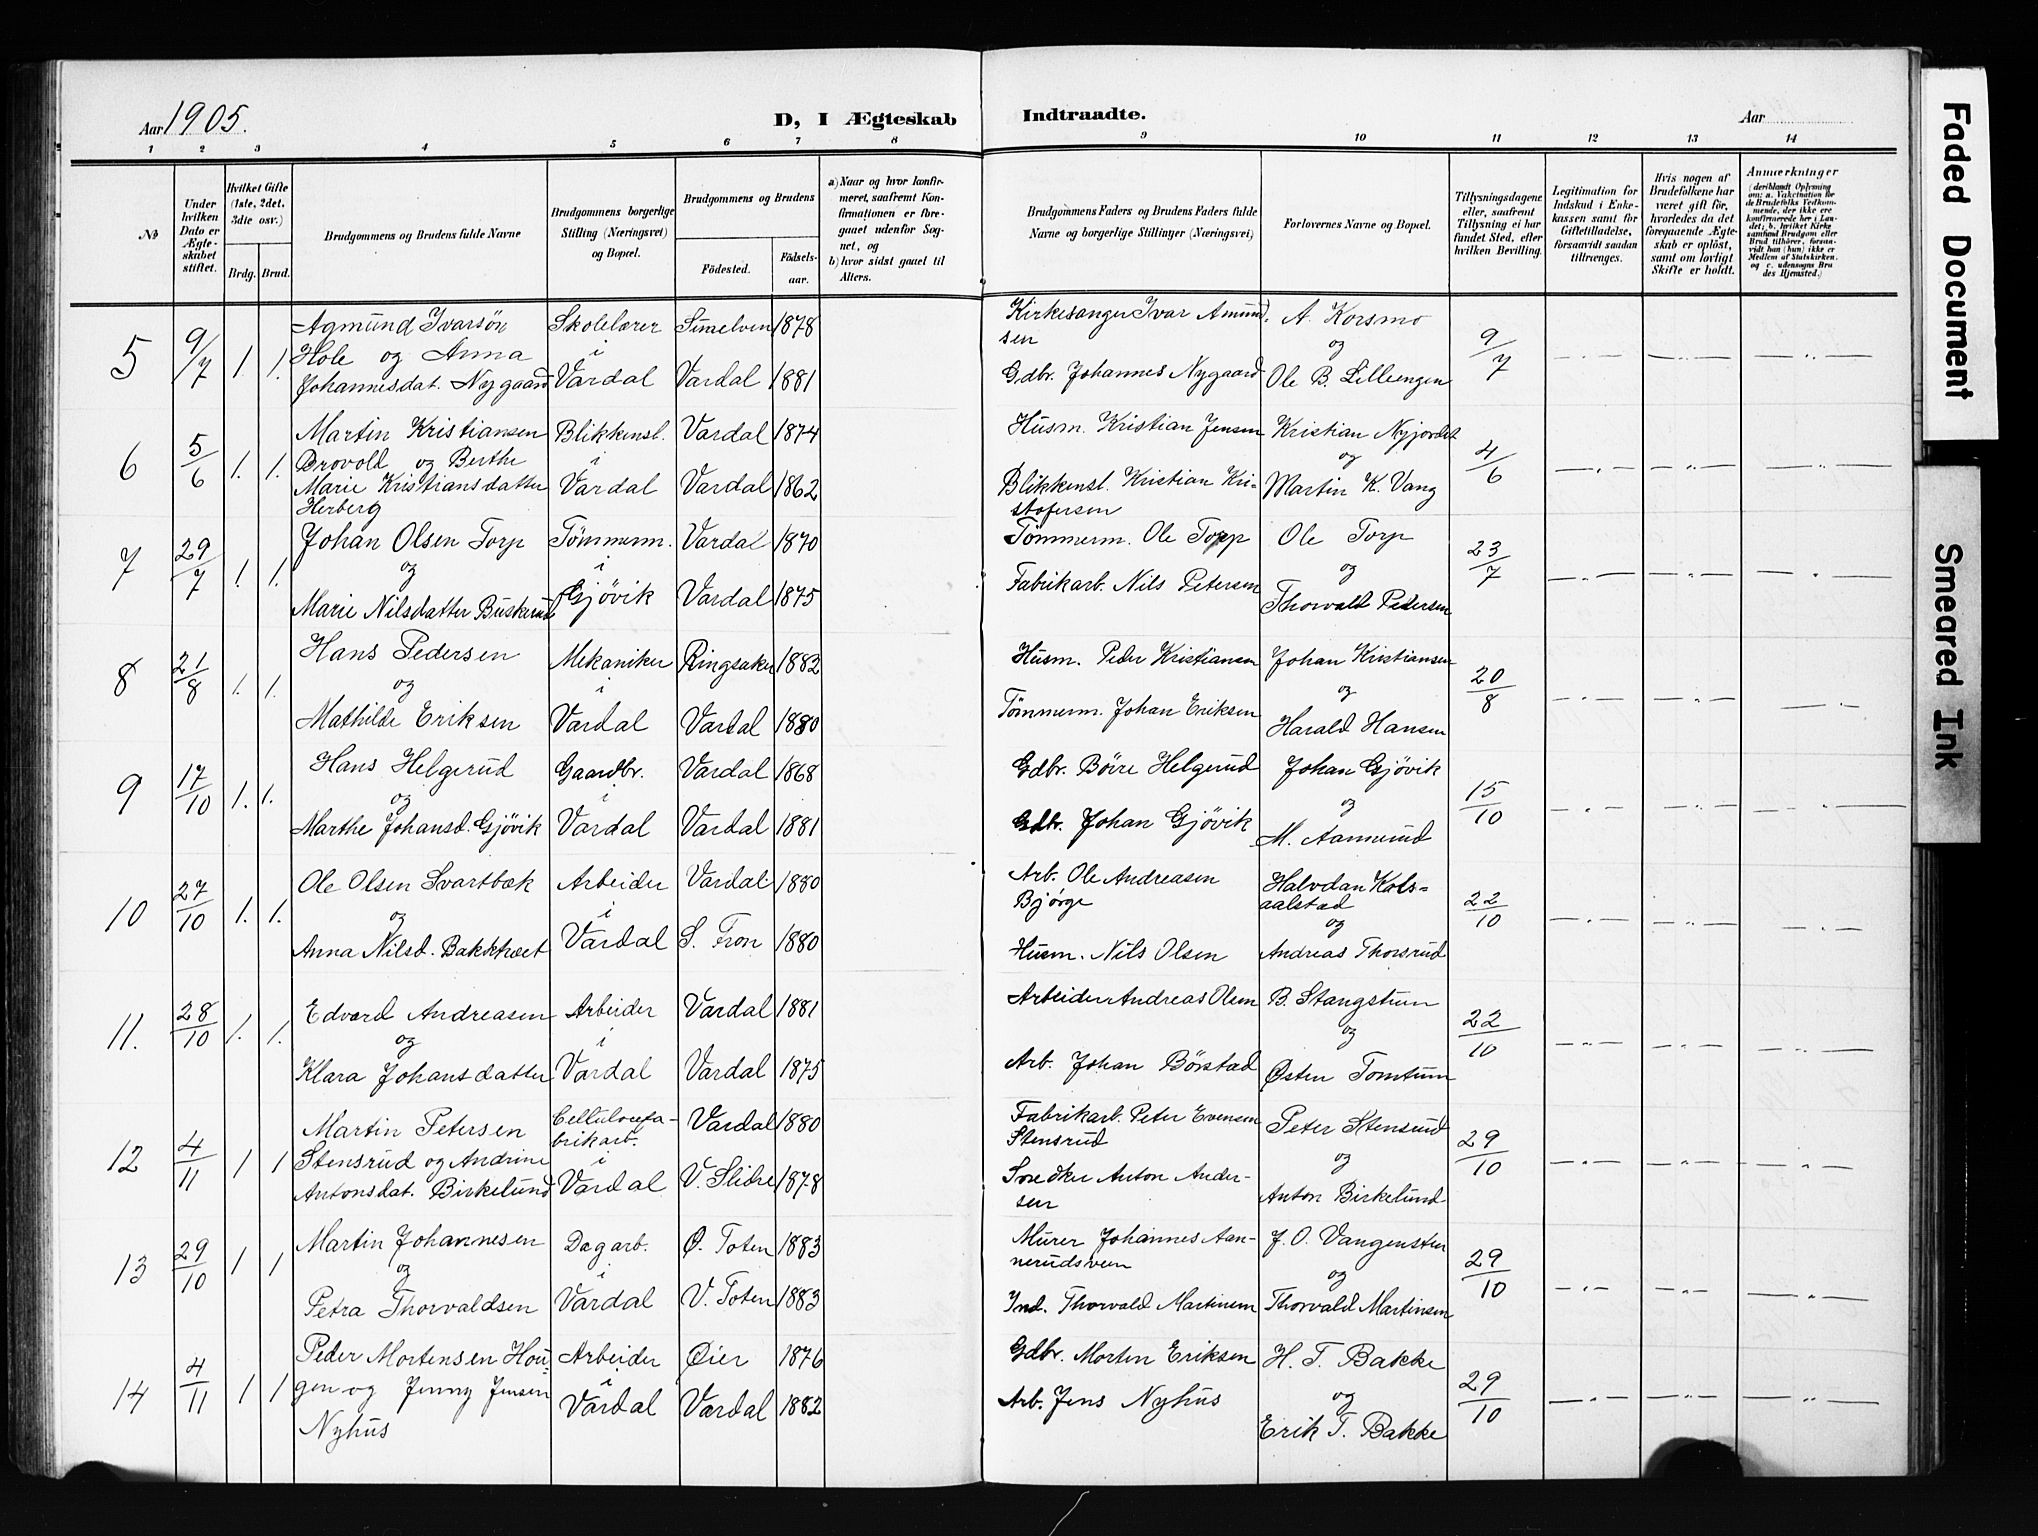 Aar 1905.
D, I Ægteskab Indtraadte.
Aar
1 2 3 4 5 6 7 8 9 10 11 12 13 14
No
Under hvilken Dato er Ægteskabet stiftet.
Hvilket Gifte (1ste, 2det, 3die osv.)
Brdg. Brud.
Brudgommens og Brudens fulde Navne
Brudgommens borgerlige Stilling (Næringsvei) og Bopæl.
Brudgommens og Brudens
Födested.
Födselsaar.
a) Naar og hvor konfirmeret, saafremt Konfirmationen er foregaaet udenfor Sognet, og
b) hvor sidst gaaet til Alters.
Brudgommens Faders og Brudens Faders fulde Navne og borgerlige Stillinger (Næringsvei)
Forlovernes Navne og Bopæl.
Tillysningsdagene eller, saafremt Tillysning ei har fundet Sted, efter hvilken Bevilling.
Legitimation for Indskud i Enkekassen samt for Giftetilladelse, forsaavidt saadan tiltrænges.
Hvis nogen af Brudefolkene har været gift för, hvorledes da det foregaaende Ægteskab er oplöst, samt om lovligt Skifte er holdt.
Anmærkninger (deriblandt Oplysning om: a. Vakcination for de Brudefolks Vedkommende, der ikke ere konfirmerede her i Landet; b. hvilket Kirkesamfund Brudgom eller Brud tilhörer, forsaavidt han (hun) ikke er Medlem af Statskirken, og c. udensogns Brudes Hjemsted.)
5 9/7 1 1. Agmund Ivarsön Skolelærer Simelven 1878 Kirkesanger Ivar Amundsen A. Korsmo 9/7
Hole og Anna i og
Johannesdat. Nygaard Vardal Vardal 1881 Gdbr. Johannes Nygaard Ole B. Lilleengen
6 5/6 1. 1. Martin Kristiansen Blikkensl. Vardal 1874 Husm. Kristian Jensen Kristian Nyjordet 4/6
Brovold og Berthe i og
Marie Kristiansdatter Vardal Vardal 1862 Blikkensl. Kristian Kristofersen Martin K. Vang
Herberg
7 29/7 1. 1. Johan Olsen Torp Tømmerm. Vardal 1870 Tømmerm. Ole Torp Ole Torp 23/7
og i og
Marie Nilsdatter Buskerud Gjövik Vardal 1875 Fabrikarb. Nils Petersen Thorvald Pedersen
8 21/8 1. 1. Hans Pedersen Mekaniker Ringsaker 1882 Husm. Peder Kristiansen Johan Kristiansen 20/8
og i og
Mathilde Eriksen Vardal Vardal 1880 Tømmerm. Johan Eriksen Harald Hansen
9 17/10 1. 1. Hans Helgerud Gaardbr. Vardal 1868 Gdbr. Börre Helgerud Johan Gjövik 15/10
og i og
Marthe Johansd. Gjövik Vardal Vardal 1881 Gdbr. Johan Gjövik M. Aannerud
10 27/10 1. 1. Ole Olsen Svartbæk Arbeider Vardal 1880 Arb. Ole Andreasen Bjørge Halvdan Kolsaalstad 22/10
og i og
Anna Nilsd. Bakketræet Vardal S. Fron 1880 Husm. Nils Olsen Andreas Thorsrud
11. 28/10 1. 1. Edvard Andreasen Arbeider Vardal 1881 Arbeider Andreas Olsen B. Stangstuen 22/10
og i og
Klara Johansdatter Vardal Vardal 1875 Arb. Johan Börstad Østen Tomtum
12 4/11 1 1 Martin Petersen Cellulosefabrikarb. Vardal 1880 Fabrikarb. Peter Evensen Stensrud Peter Stensrud 29/10
Stensrud og Andrine i og
Antonsdat. Birkelund Vardal V. Slidre 1878 Snedker Anton Andersen Anton Birkelund
13 29/10 1 1 Martin Johannesen Dagarb. Ø. Toten 1883 Murer Johannes Aannerudsveen J. O. Vangensten 29/10
og i og
Petra Thorvaldsen Vardal V. Toten 1883 Ind. Thorvald Martinsen Thorvald Martinsen
14 4/11 1 1 Peder Mortensen Hougen og Jenny Jensen Arbeider Øier 1876 Gdbr. Morten Eriksen H. T. Bakke 29/10
i og
Nyhus Vardal Vardal 1882 Arb. Jens Nyhus Erik T. Bakke
Faded Document
Smeared Ink